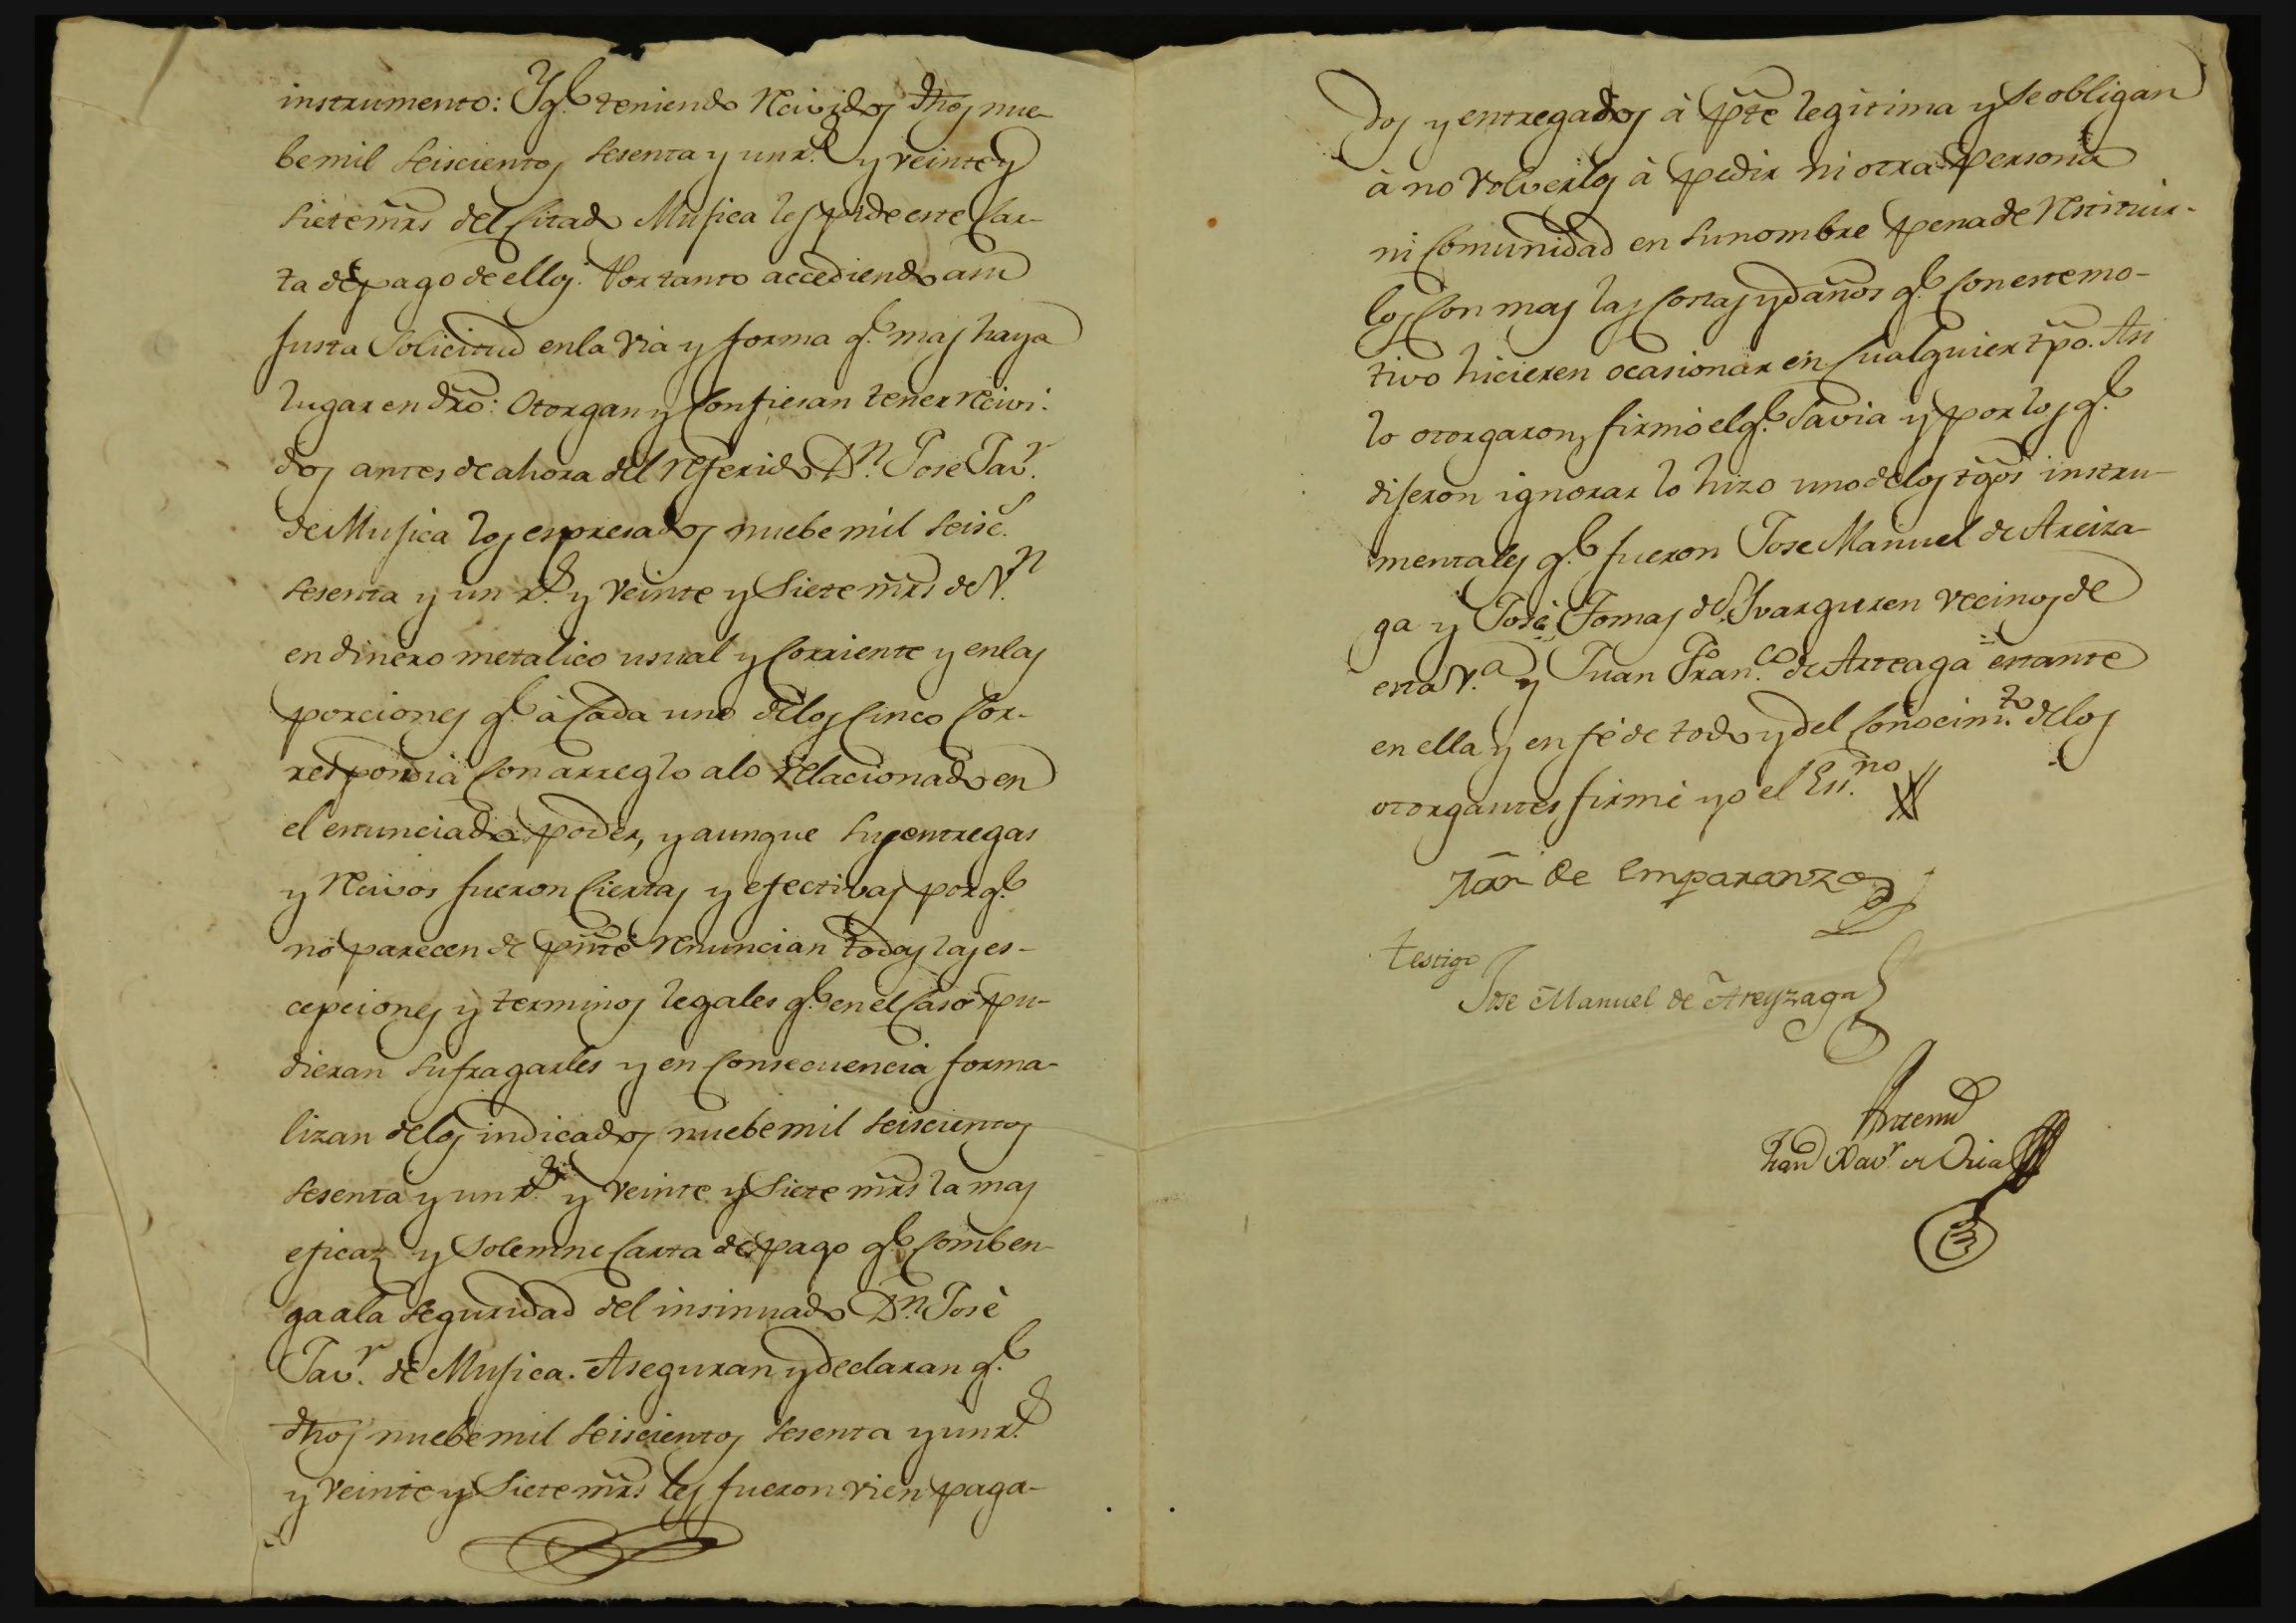 instrumento: Y q.e teniendo recividos dhos nue-
bemil seiscientos sesenta y un r.s y veinte y
siete mrs del citado Mugica les pide este car-
ta de pago de ellos. Por tanto accediendo a su
justa solicitud en la via y forma q.e mas haya
lugar en dro: Otorgan y confiesan tener recivi-
dos antes de ahora del referido D.n Jose Jav.r
de Mugica los expresados nuebe mil seisc.s
sesenta y un r.s y veinte y siete mrs de v.n
en dinero metalico usual y corriente y en las
porciones q.e à cada uno de los cinco cor-
respondia con arreglo a lo relacionado en
el enunciado poder, y aunque sus entregas
y recivos fueron ciertas y efectivas porq.e
no parecen de pnte renuncian todas las es-
cepciones y terminos legales q.e en el caso pu-
dieran sufragarles y en consecuencia forma-
lizan de los indicados nuebe mil seiscientos
sesenta y un r.s y veinte y siete mrs la mas
eficaz y solemne carta de pago q.e comben-
ga a la seguridad del insinuado D.n José
Jav.r de Mugica. Aseguran y declaran q.e
dhos nuebe mil seiscientos sesenta y un r.s
y veinte y siete mrs les fueron vien paga-
dos y entregados à pte legitima y se obligan
à no volverlos à pedir ni otra persona
ni comunidad en su nombre pena de restituir-
los con mas las costas y daños q.e con este mo-
tivo hicieren ocasionar en cualquier tpo. Asi
lo otorgaron, firmó el q.e savia y por los q.e
dijeron ignorar lo hizo uno de los tgos instru-
mentales q.e fueron Jose Manuel de Areiza-
ga y José Tomas de Yvarguren vecinos de
esta v.a y Juan Fran.co de Arteaga estante
en ella y en fé de todo y del conocim.to de los
otorgantes firmé yo el Es.no
Jũn de Emparanza
testigo
Jose Manuel de Areyzaga
Antemi
Fran.co Xav.r de Oria